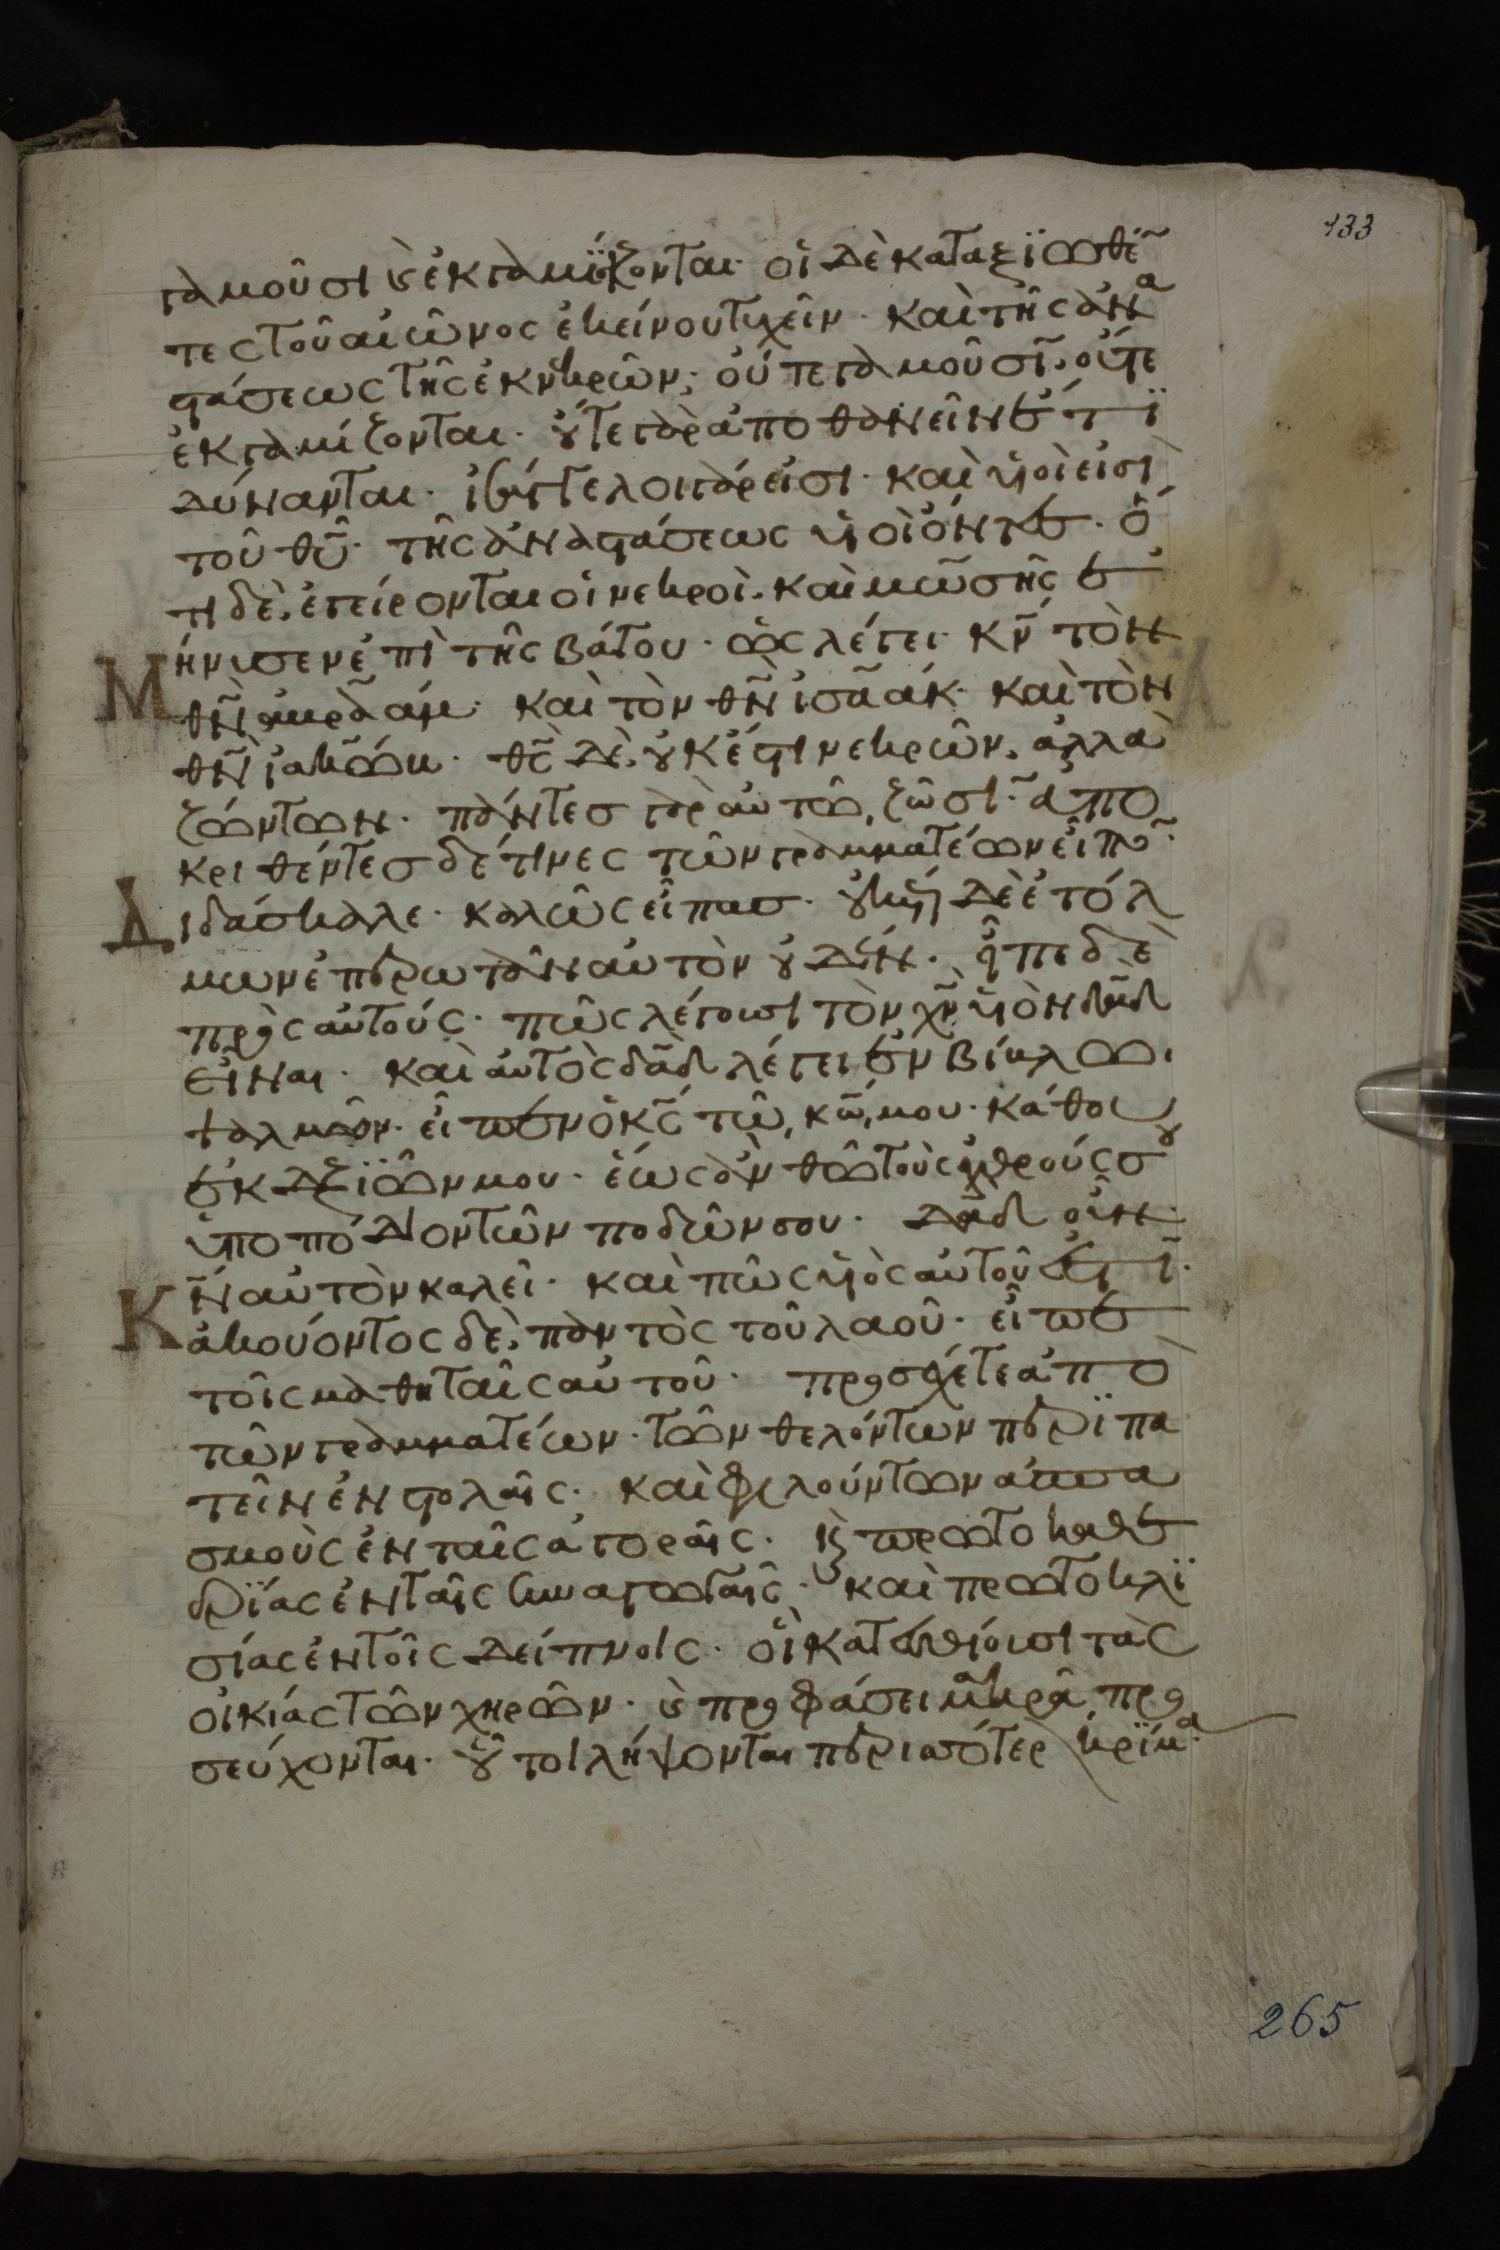 133
γαμοῦσι κ(αὶ) ἐκγαμίζονται· οἱ δὲ καταξϊωθέ(ν)
τες τοῦ αἰῶνος ἐκείνου τυχεῖν· καὶ τῆς ἀνα
στάσεως τῆς ἐκ νεκρῶν· οὔτε γαμοῦσϊν· οὔτε
ἐκγαμίζονται· οὔτε γὰρ ἀποθανεῖν ἔτϊ
δύνανται· ἰσάγγελοι γάρ εἰσι· καὶ υἱοί εἰσι
τοῦ θῡ· τῆς ἀναστάσεως υἱοὶ ὄντες· ὅ
τι δὲ ἐγείρονται οἱ νεκροὶ· καὶ μωσῆς ἐ
Μήνυσεν ἐπὶ τῆς βάτου· ὡς λέγει κ̄ν τὸν
θ̄ν ἀβραὰμ· καὶ τὸν θ̄ν ἰσαὰκ· καὶ τὸν
θ̄ν ἰακώβ· θ̄ς δὲ οὐκ ἔστι νεκρῶν· ἀλλὰ
ζώντων· πάντες γὰρ αὐτῶ ζῶσιν· ἀπο
κριθέντες δέ τινες τῶν γραμματέων εἶπον·
Διδάσκαλε· καλῶς εἶπας· οὐκέτι δὲ ἐτόλ
μων ἐπερωτᾶν αὐτὸν οὐδέν· εἶπε δὲ
πρὸς αὐτούς· πῶς λέγουσι τὸν χ̄ν υἱὸν δ̄αδ
εἶναι· καὶ αὐτὸς δ̄αδ λέγει ἐν βίβλω
ψαλμῶν· εἶπεν ὁ κ̄ς τῶ κ̄ω μου· κάθου
ἐκ δεξϊῶν μου· ἕως ἂν θῶ τοὺς ἐχθρούς σου
ὑποπόδιον τῶν ποδῶν σου· δ̄αδ οὖν
κ̄ν αὐτὸν καλεῖ· καὶ πῶς υἱὸς αὐτοῦ ἐστϊν·
ἀκούοντος δὲ παντὸς τοῦ λαοῦ· εἶπε
τοῖς μαθηταῖς αὐτοῦ· προσέχετε ἀπὸ
τῶν γραμματέων· τῶν θελόντων περϊπα
τεῖν ἐν στολαῖς· καὶ φιλούντων ἀσπα
σμοὺς ἐν ταῖς ἀγοραῖς· κ(αὶ) πρωτοκαθε
δρϊὰς ἐν ταῖς συναγωγαῖς· καὶ πρωτοκλϊ
σίας ἐν τοῖς δείπνοις· οἳ κατεσθίουσι τὰς
οἰκίας τῶν χηρῶν· κ(αὶ) προφάσει μακρὰ προ
σεύχονται· οὗτοι λήψονται περισσότερ(ον) κρῖμα·
265